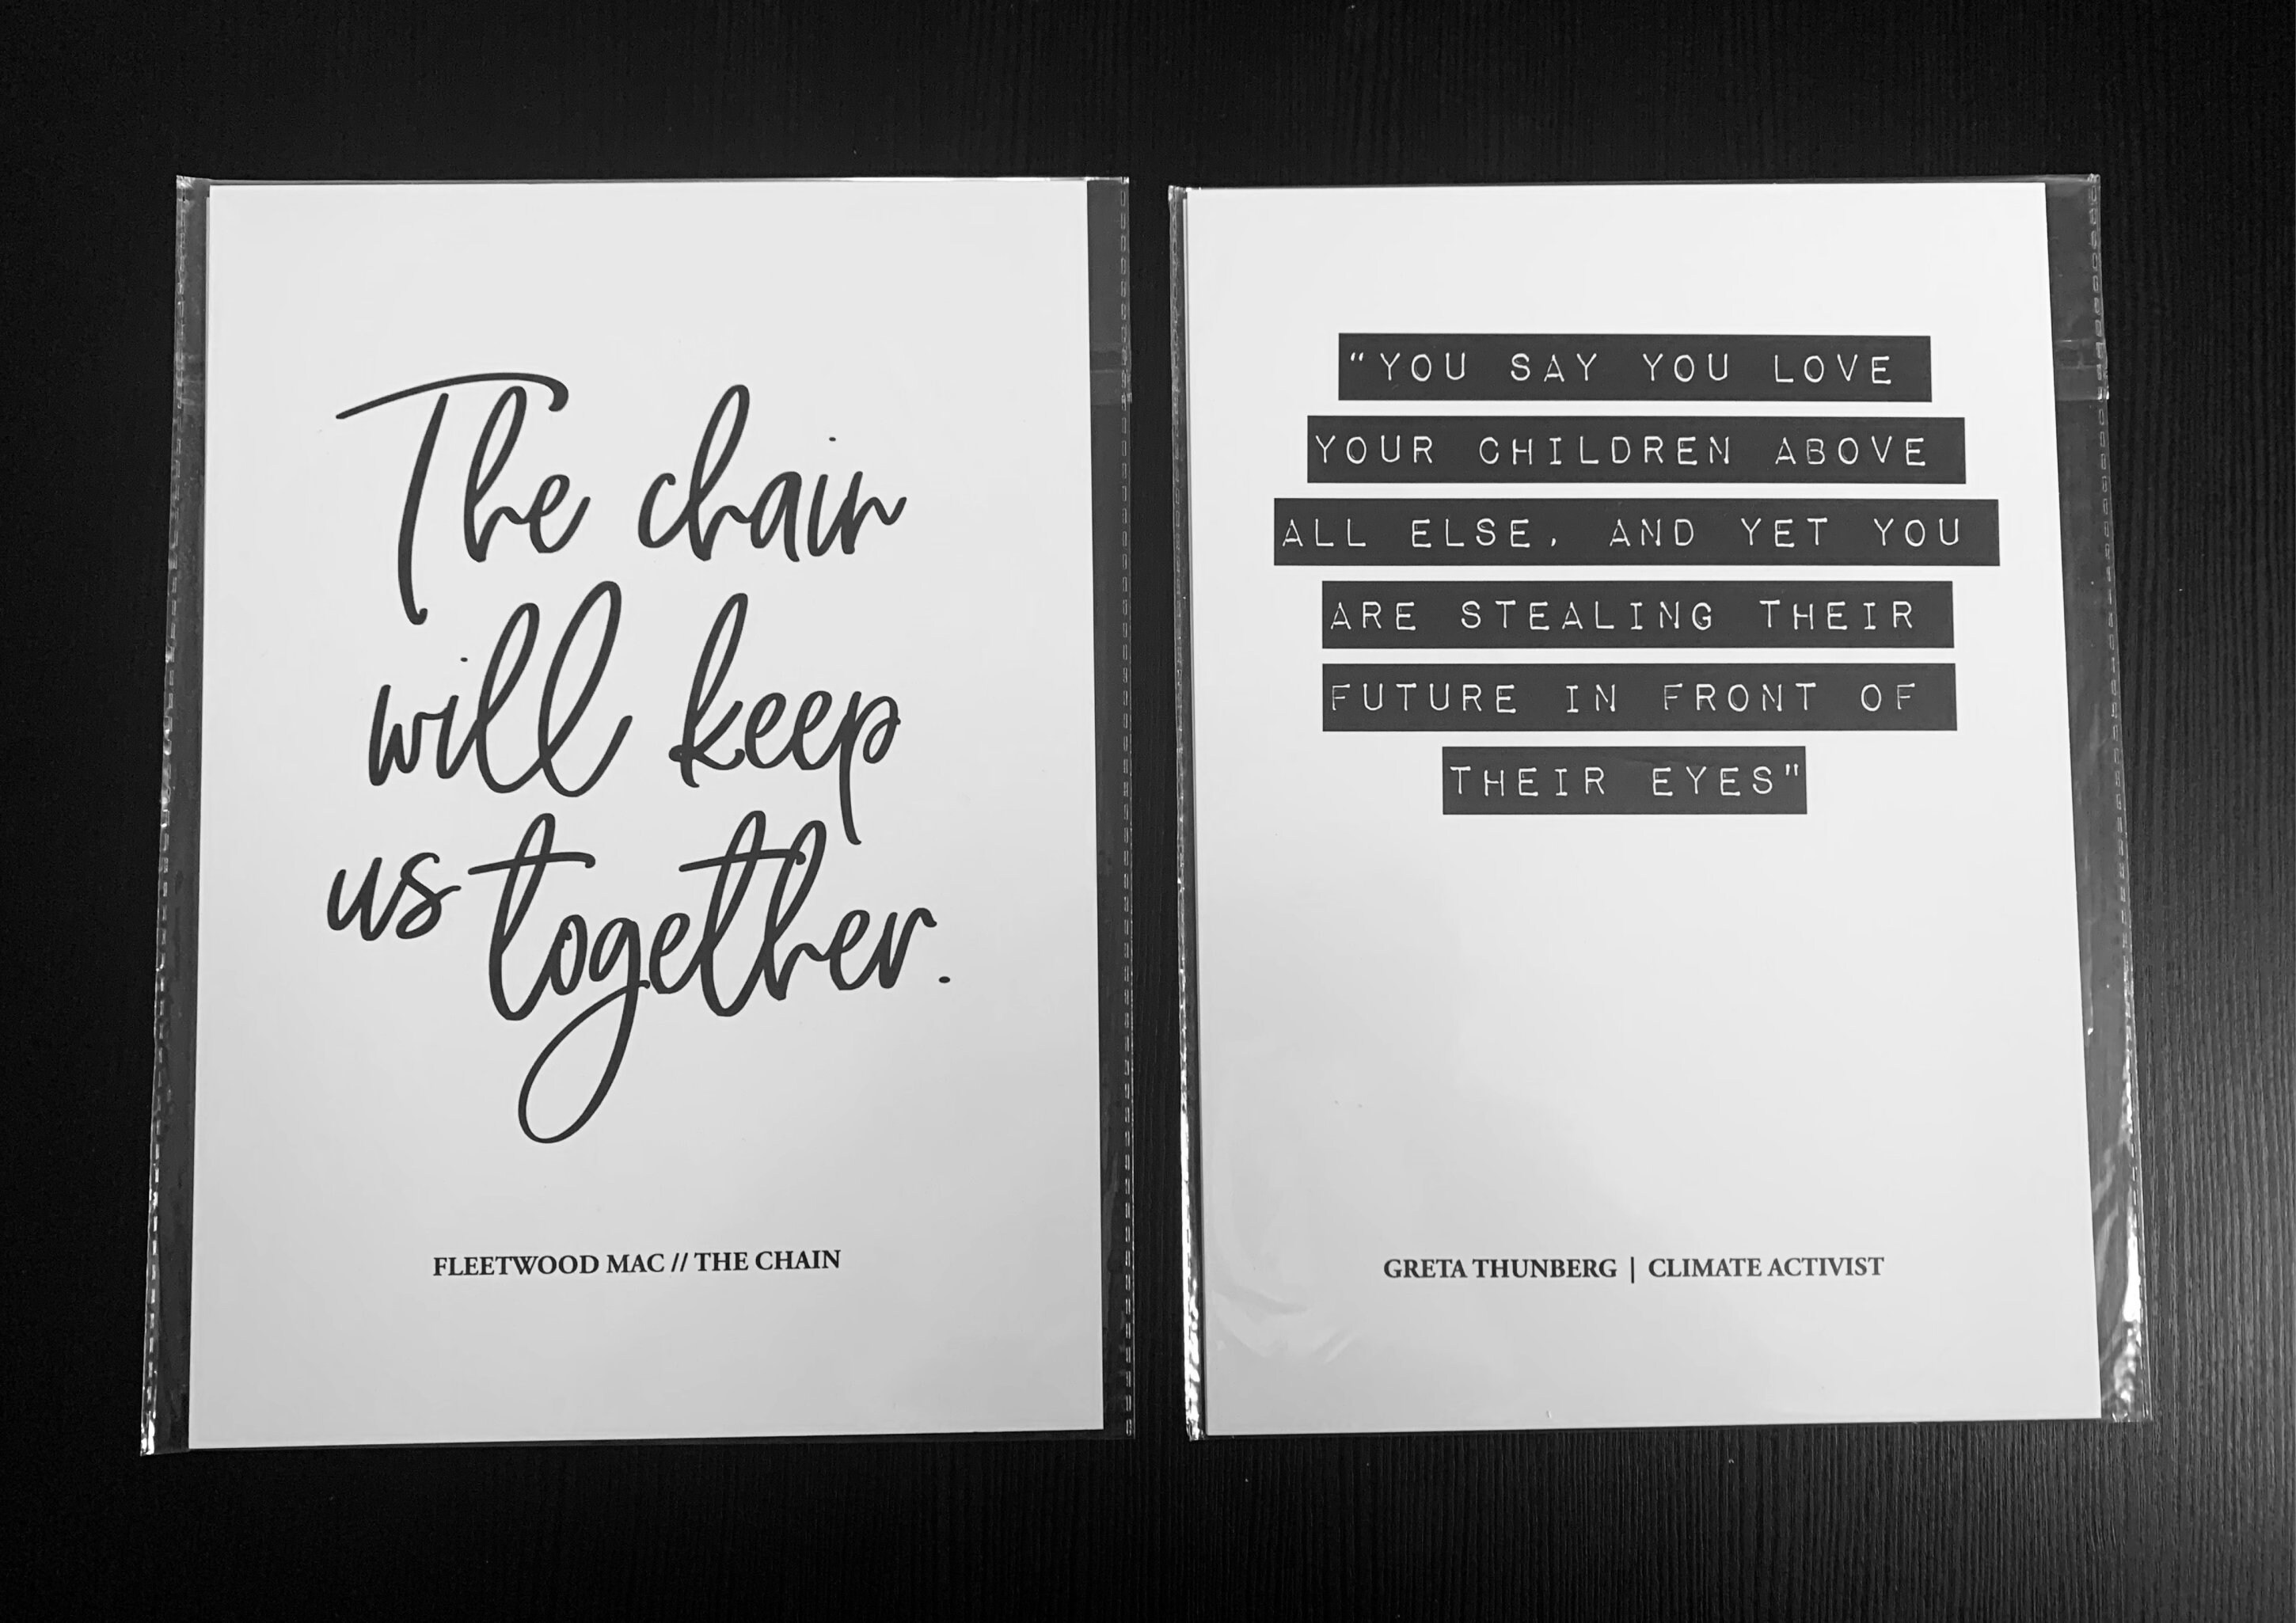 The chain
will keep
us together.
FLEETWOOD MAC // THE CHAIN
“YOU SAY YOU LOVE
YOUR CHILDREN ABOVE
ALL ELSE, AND YET YOU
ARE STEALING THEIR
FUTURE IN FRONT OF
THEIR EYES"
GRETA THUNBERG | CLIMATE ACTIVIST